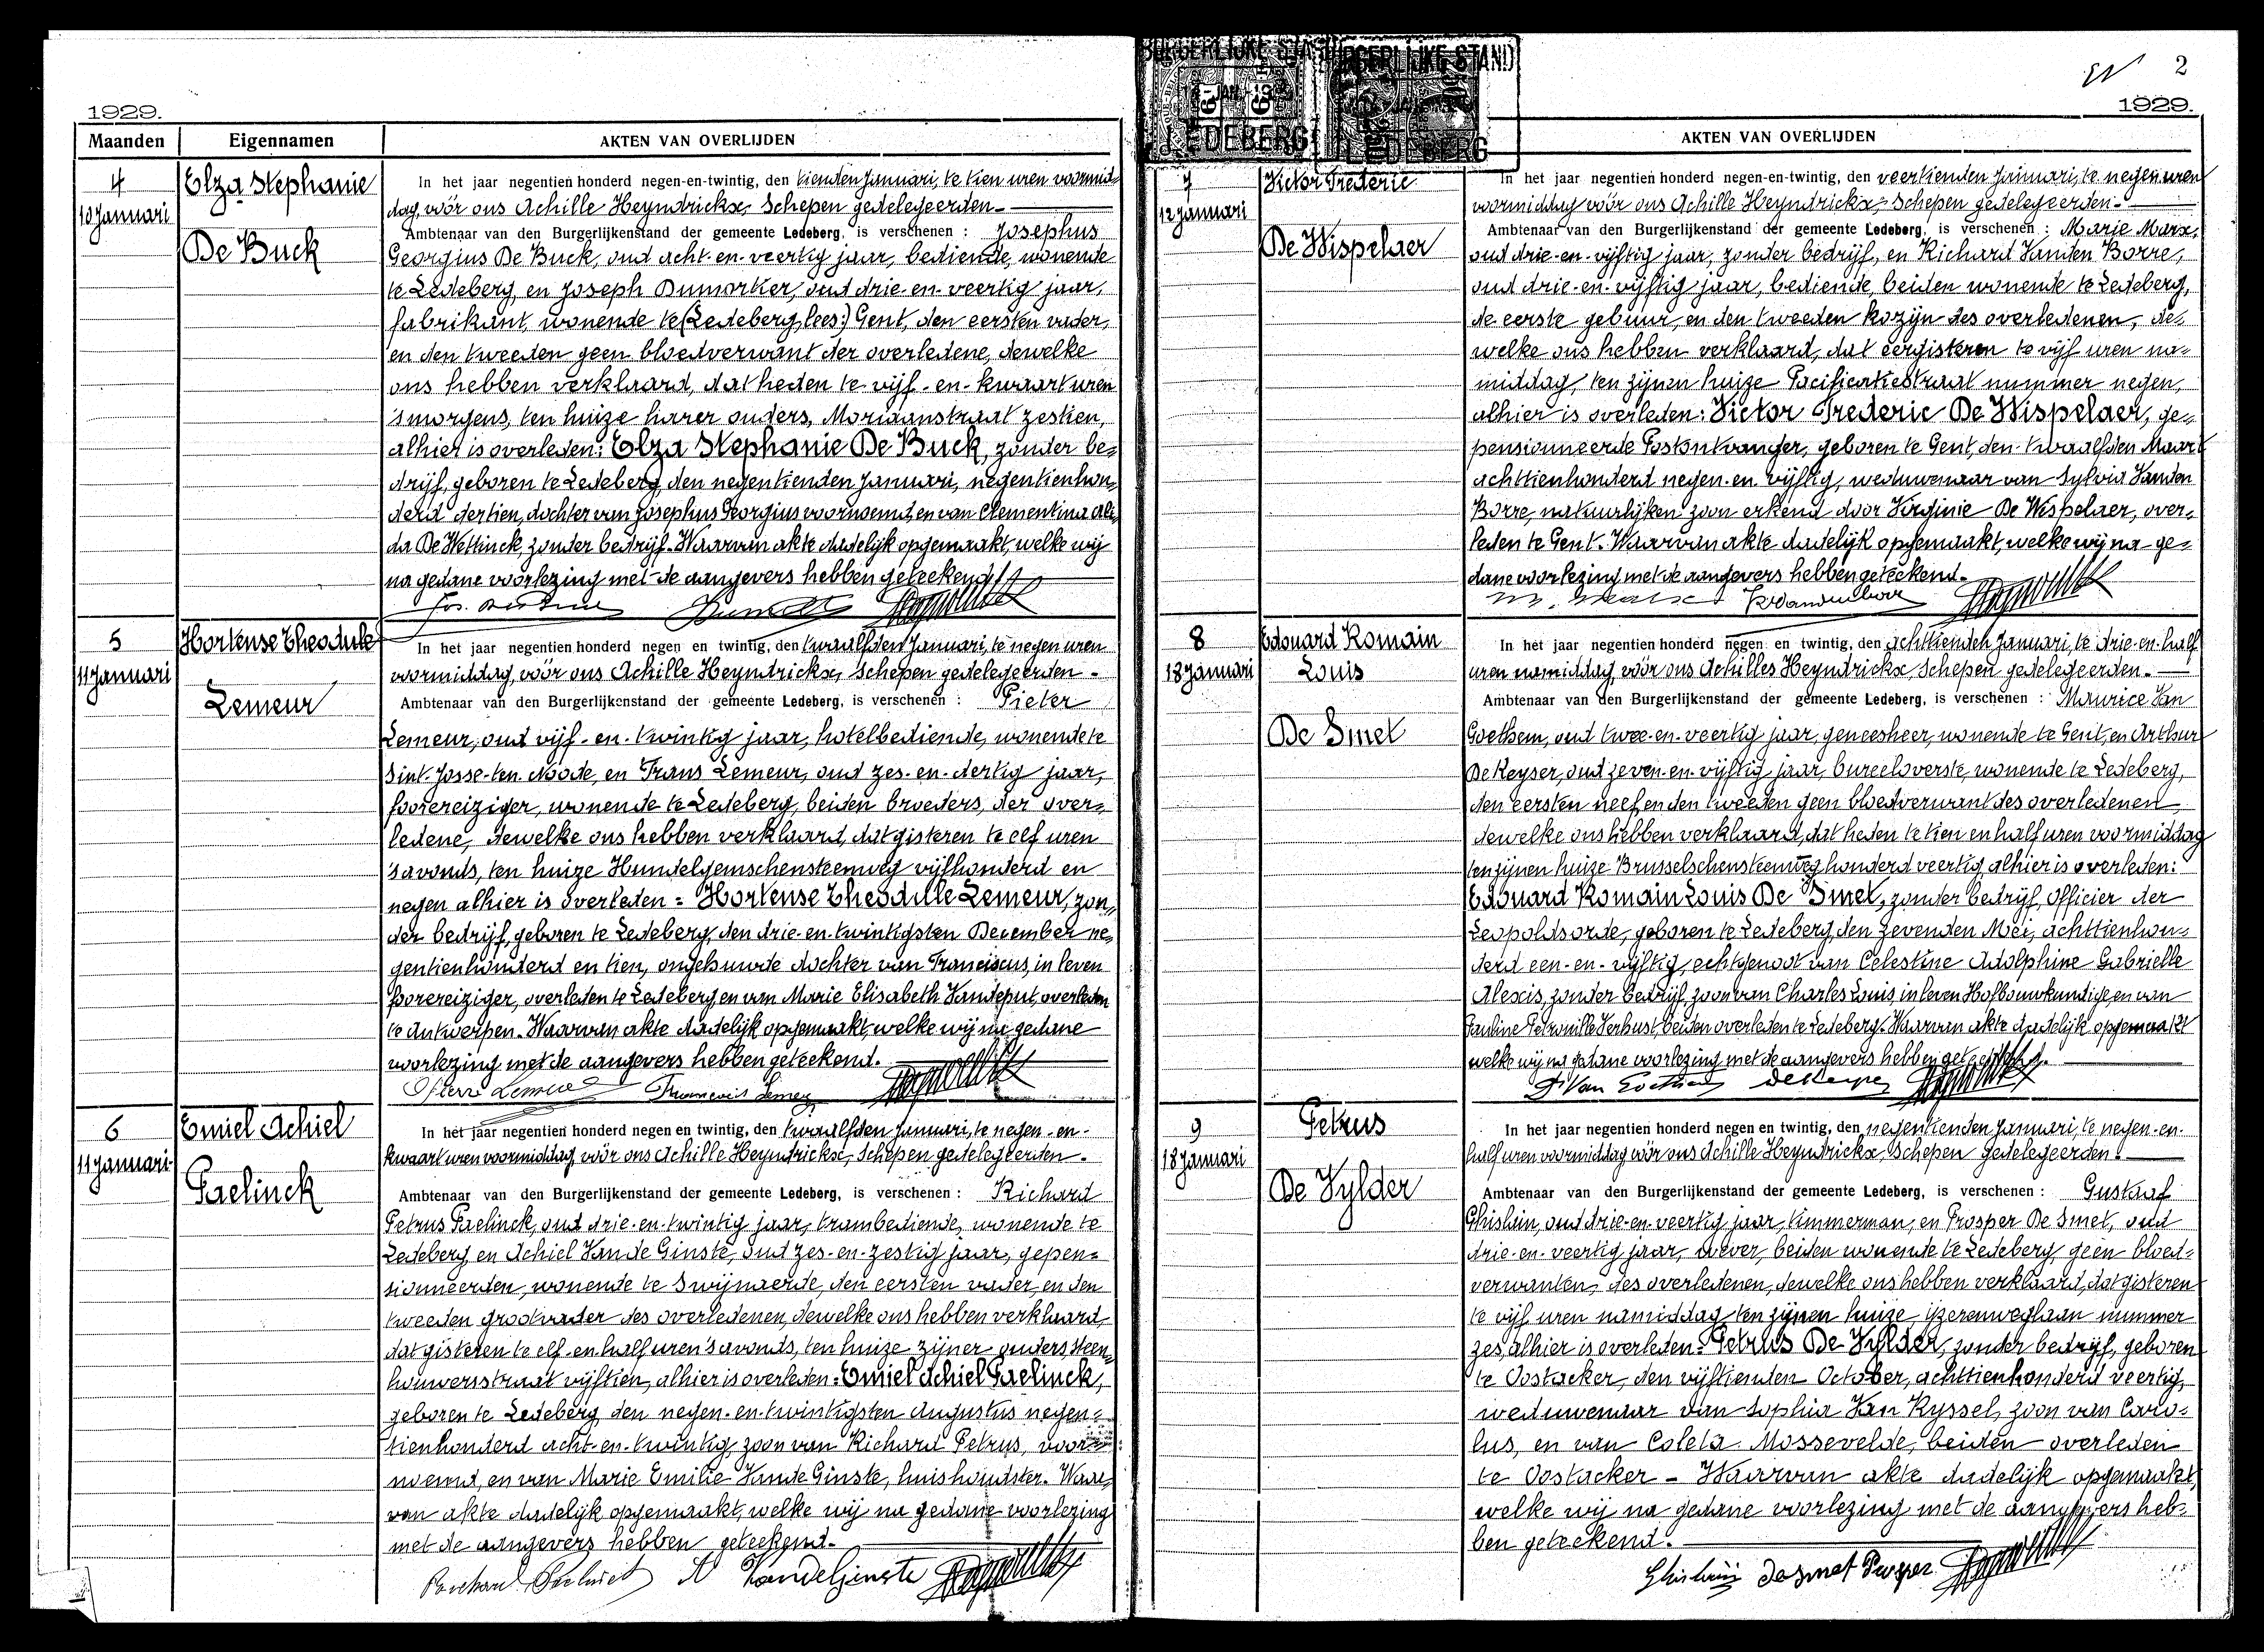 1929.
Maanden Eigennamen AKTEN VAN OVERLIJDEN
4
10 Januari
Elza Stephanie
De Buck
In het jaar negentien honderd negen-en-twintig, den tienden Januari, te tien uren voormid-
dag, vóór ons Achille Heyndrickx, Schepen gedelegeerden-
Ambtenaar van den Burgerlijkenstand der gemeente Ledeberg, is verschenen : Josephus
Georgius De Buck, oud acht-en-veertig jaar, bediende, wonende
te Ledeberg, en Joseph Dumortier, oud drie-en-veertig jaar,
fabrikant, wonende te (Ledeberg, lees:) Gent, den eersten vader,
en den tweeden geen bloedverwant der overledene, dewelke
ons hebben verklaard, dat heden te vijf-en-kwaart uren
'smorgens, ten huize harer ouders, Moriaanstraat zestien,
alhier is overleden: Elza Stephanie De Buck, zonder be-
drijf, geboren te Ledeberg, den negentienden Januari, negentienhon-
derd dertien, dochter van Josephus Georgius voornoemd, en van Clementina Ali-
da De Wettinck, zonder bedrijf. Waarvan akte dadelijk opgemaakt, welke wij
na gedane voorlezing met de aangevers hebben geteekend
5
11 Januari
Hortense Theodule
Lemeur
In het jaar negentien honderd negen en twintig, den twaalfden Januari, te negen uren
voormiddag, vóór ons Achille Heyndrickx, Schepen gedelegeerden-
Ambtenaar van den Burgerlijkenstand der gemeente Ledeberg, is verschenen : Pieter
Lemeur, oud vijf-en-twintig jaar, hotelbediende, wonende te
Sint-Josse-ten-Noode, en Frans Lemeur, oud zes-en-dertig jaar,
foorereiziger, wonende te Ledeberg, beiden broeders, der over-
ledene, dewelke ons hebben verklaard, dat gisteren te elf uren
'savonds, ten huize Hundelgemschensteenweg vijfhonderd en
negen alhier is overleden = Hortense Theodule Lemeur, zon-
der bedrijf, geboren te Ledeberg, den drie-en-twintigsten December ne-
gentienhonderd en tien, ongehuwde dochter van Franciscus, in leven
foorereiziger, overleden te Ledeberg, en van Marie Elisabeth Vandeput, overleden
te Antwerpen. Waarvan akte dadelijk opgemaakt, welke wij na gedane
voorlezing met de aangevers hebben geteekend.
Pierre Lemeur
6
11 Januari
Emiel Achiel
Paelinck
In het jaar negentien honderd negen en twintig, den twaalfden Januari, te negen-en-
kwaart uren voormiddag, vóór ons Achille Heyndrickx, Schepen gedelegeerden-
Ambtenaar van den Burgerlijkenstand der gemeente Ledeberg, is verschenen : Richard
Petrus Paelinck, oud drie-en-twintig jaar, trambediende, wonende te
Ledeberg en Achiel Van de Ginste, oud zes-en-zestig jaar, gepen-
sionneerden, wonende te Swijnaerde, den eersten vader, en den
tweeden grootvader des overledenen, dewelke ons hebben verklaard,
dat gisteren te elf-en-half uren 'savonds, ten huize zijner ouders, Steen-
houwersstraat vijftien, alhier is overleden: Emiel Achiel Paelinck,
geboren te Ledeberg den negen-en-twintigsten Augustus negen-
tienhonderd acht-en-twintig, zoon van Richard Petrus, voor-
noemd, en van Marie Emilie Van de Ginste, huishoudster. Waar-
van akte dadelijk opgemaakt, welke wij na gedane voorlezing
met de aangevers hebben geteekend.
Richard Paelinck A Vandeginste
BURGERLIJKE STAND BURGERLIJKE STAND
LEDEBERG LEDEBERG
2
1929.
AKTEN VAN OVERLIJDEN
7
12 Januari
Victor Frederic
De Wispelaer
In het jaar negentien honderd negen-en-twintig, den veertienden Januari, te negen uren
voormiddag vóór ons Achille Heyndrickx, Schepen gedelegeerden-
Ambtenaar van den Burgerlijkenstand der gemeente Ledeberg, is verschenen : Marie Marx,
oud drie-en-vijftig jaar, zonder bedrijf, en Richard Vanden Borre,
oud drie-en-vijftig jaar, bediende, beiden wonende te Ledeberg,
de eerste gebuur, en den tweeden kozijn des overledenen, de-
welke ons hebben verklaard, dat eergisteren te vijf uren na-
middag, ten zijnen huize Pacificatiestraat nummer negen,
alhier is overleden: Victor Frederic De Wispelaer, ge-
pensionneerde Postontvanger, geboren te Gent, den twaalfden Maart
achttienhonderd negen-en-vijftig, weduwenaar van Sylvia Vanden
Borre, natuurlijken zoon erkend door Virginie De Wispelaer, over-
leden te Gent. Waarvan akte dadelijk opgemaakt, welke wij na ge-
dane voorlezing met de aangevers hebben geteekend.
8
18 Januari
Edouard Romain
Louis
De Smet
In het jaar negentien honderd negen en twintig, den achttienden Januari, te drie-en-half
uren namiddag, vóór ons Achilles Heyndrickx, Schepen gedelegeerden-
Ambtenaar van den Burgerlijkenstand der gemeente Ledeberg, is verschenen : Maurice Van
Goethem, oud twee-en-veertig jaar, geneesheer, wonende te Gent, en Arthur
De Keyser, oud zeven-en-vijftig jaar, bureeloverste, wonende te Ledeberg,
den eersten neef en den tweeden geen bloedverwant des overledenen,
dewelke ons hebben verklaard, dat heden te tien en half uren voormiddag
ten zijnen huize Brusselschensteenweg honderd veertig, alhier is overleden:
Edouard Romain Louis De Smet, zonder bedrijf, Officier der
Leopoldsorde, geboren te Ledeberg, den zevenden Mei, achttienhon-
derd een-en-vijftig, echtgenoot van Celestine Adolphine Gabrielle
Alexis, zonder bedrijf, zoon van Charles Louis, in leven Hofbouwkundige, en van
Pauline Petronille Verhust, beiden overleden te Ledeberg. Waarvan akte dadelijk opgemaakt
welke wij na gedane voorlezing met de aangevers hebben geteekend.
Dr Van Goethem DeKeyser
9
18 Januari
Petrus
De Vylder
In het jaar negentien honderd negen en twintig, den negentienden Januari, te negen-en-
half uren voormiddag vóór ons Achille Heyndrickx, Schepen gedelegeerden-
Ambtenaar van den Burgerlijkenstand der gemeente Ledeberg, is verschenen : Gustaaf
Ghislain, oud drie-en-veertig jaar, timmerman, en Prosper De Smet, oud
drie-en-veertig jaar, wever, beiden wonende te Ledeberg, geen bloed-
verwanten, des overledenen, dewelke ons hebben verklaard, dat gisteren
te vijf uren namiddag, ten zijnen huize ijzerenweglaan nummer
zes, alhier is overleden: Petrus De Vylder, zonder bedrijf, geboren
te Oostacker, den vijftienden October, achttienhonderd veertig,
weduwenaar van Sophia Van Ryssel, zoon van Caro-
lus, en van Coleta Mossevelde, beiden overleden
te Oostacker - Waarvan akte dadelijk opgemaakt,
welke wij na gedane voorlezing met de aangevers heb-
ben geteekend.
Ghislain Desmet Prosper